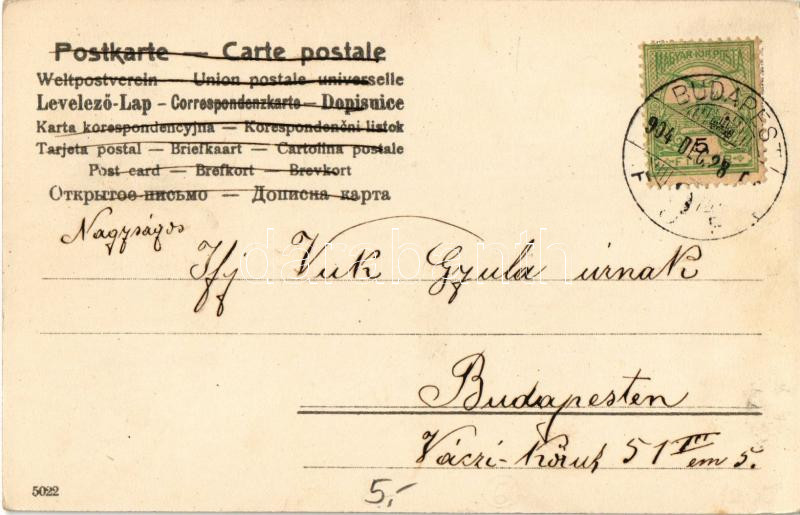 Postkarte — Carte postale
Weltpostverein — Union postale universelle
Levelező-Lap – Correspondenzkarte – Dopisnice
Karta korespondencyjna — Korespondenční listok
Tarjeta postal — Briefkaart — Cartolina postale
Post card — Brefkort — Brevkort
Открытое письмо — Дописна карта
MAGYAR KIR. POSTA
BUDAPEST
904 DEC. 28
5
Nagyságos
Ifj Vuk Gyula úrnak
darabanth
Budapesten
Váczi-Körút 51 III em 5.
5022
5,-